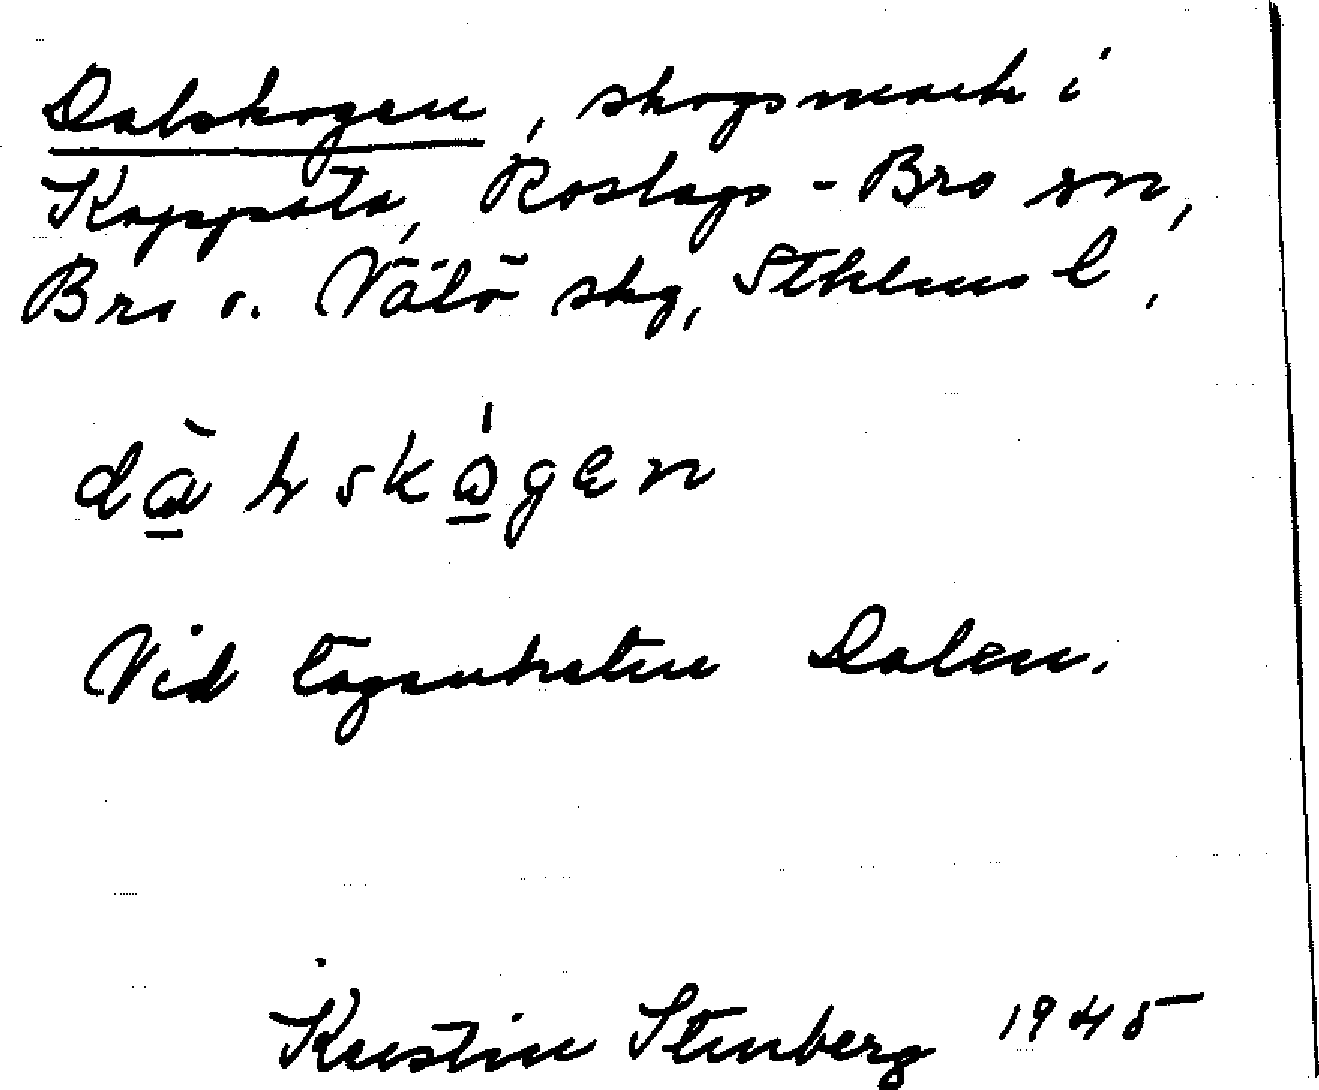 Dalskogen, skogsmark i
Kappsta, Roslags-Bro sn,
Bro o. Vätö skg, Sthlms l,
dà̱ lskò̱gen
Vid lägenheten Dalen.
Kerstin Stenberg 1945